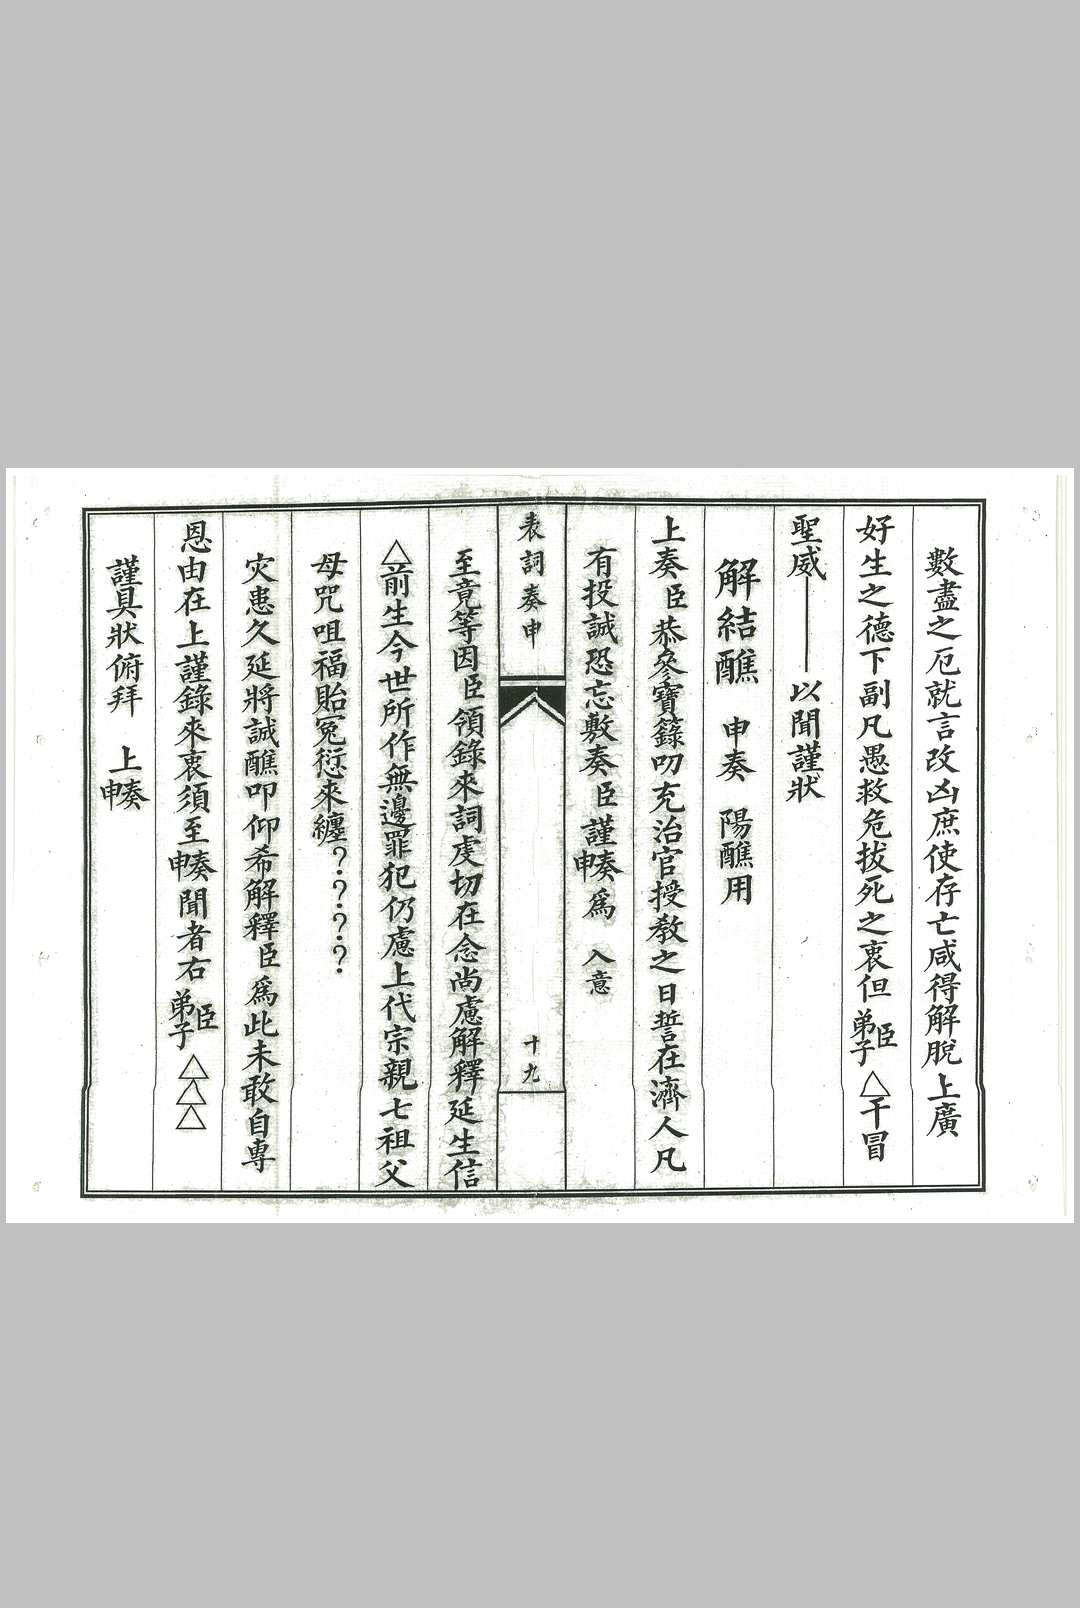 數盡之厄就言改凶庶使存亡咸得解脫上廣
好生之德下副凡愚救危拔死之衷但臣弟子△干冒
聖威——以聞謹狀
解結醮 申奏 陽醮用
上奏臣恭參寶籙叨充治官授教之日誓在濟人凡
有投誠恐忘敷奏臣謹奏申爲 入意
表詞奏申
十九
至竟等因臣領錄來詞虔切在念尚慮解釋延生信
△前生今世所作無邊罪犯仍慮上代宗親七祖父
母咒咀福貽冤愆來纏？？？？
灾患久延將誠醮叩仰希解釋臣爲此未敢自專
恩由在上謹錄來衷須至奏申聞者右臣弟子△△△
謹具狀俯拜 上奏申